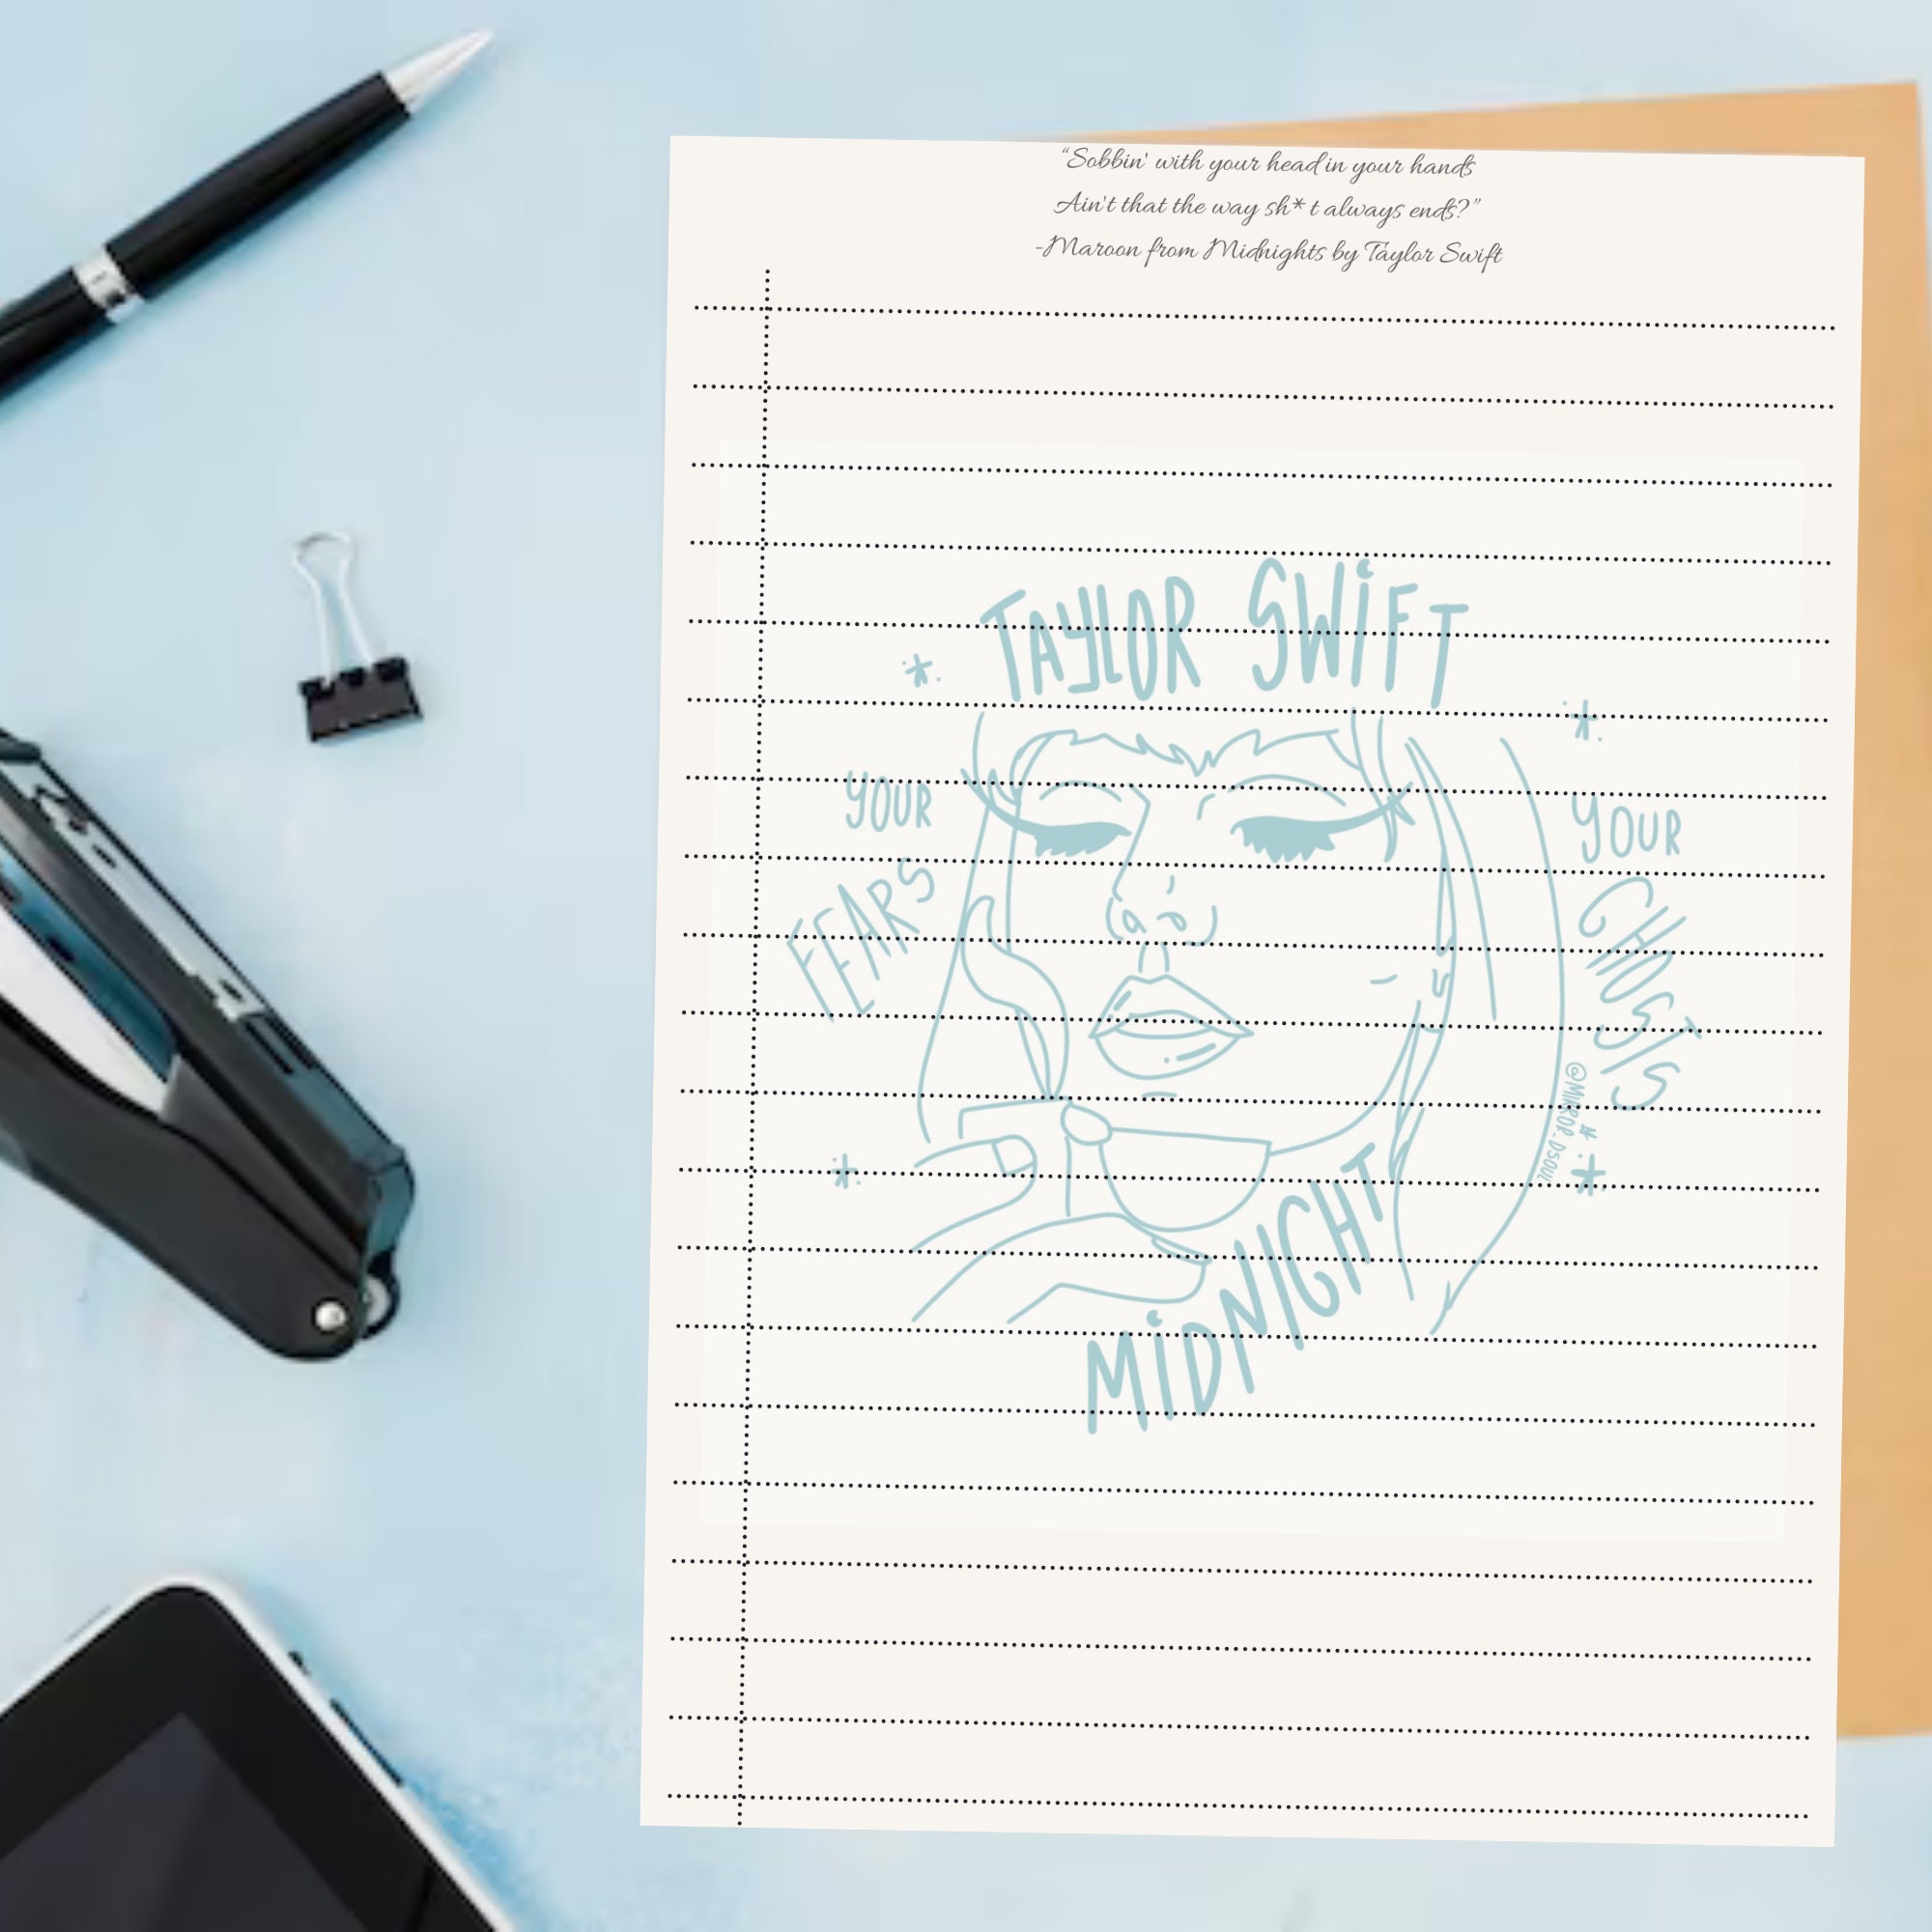 “Sobbin' with your head in your hands
Ain't that the way sh*t always ends?”
-Maroon from Midnights by Taylor Swift
TAYLOR SWIFT
YOUR
FEARS
YOUR
GHOSTS
@MIROR_DSOUL
MIDNIGHT